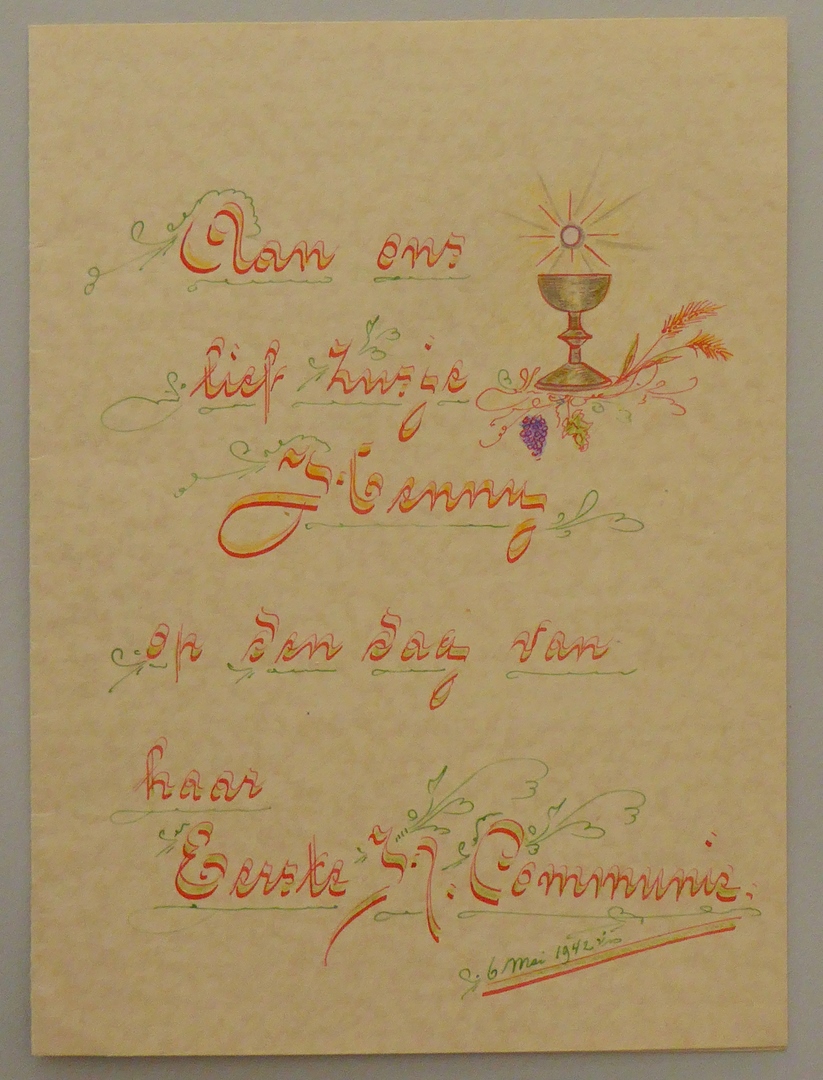 Aan ons
lief zusje
Henny
op den dag van
haar
Eerste H. Communie.
6 Mei 1942